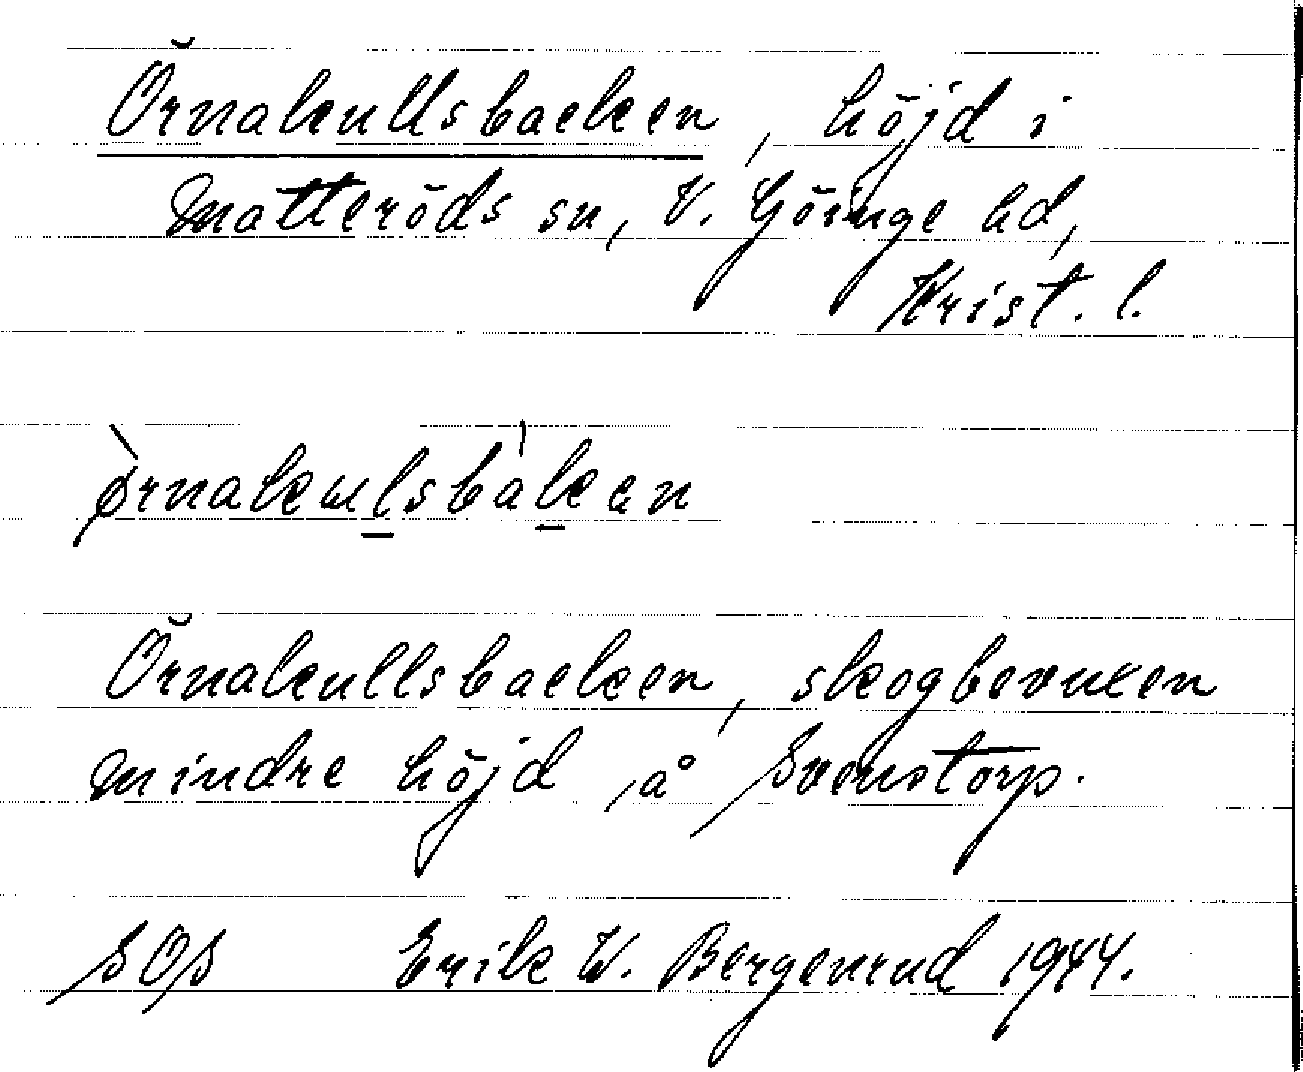 Örnakullsbacken, höjd i
Matteröds sn, V. Göinge hd,
Krist. l.
ørnakɯlsbàkɐn
Örnakullsbacken, skogbevuxen
mindre höjd å Svenstorp.
SOS Erik W. Bergenrud 1944.